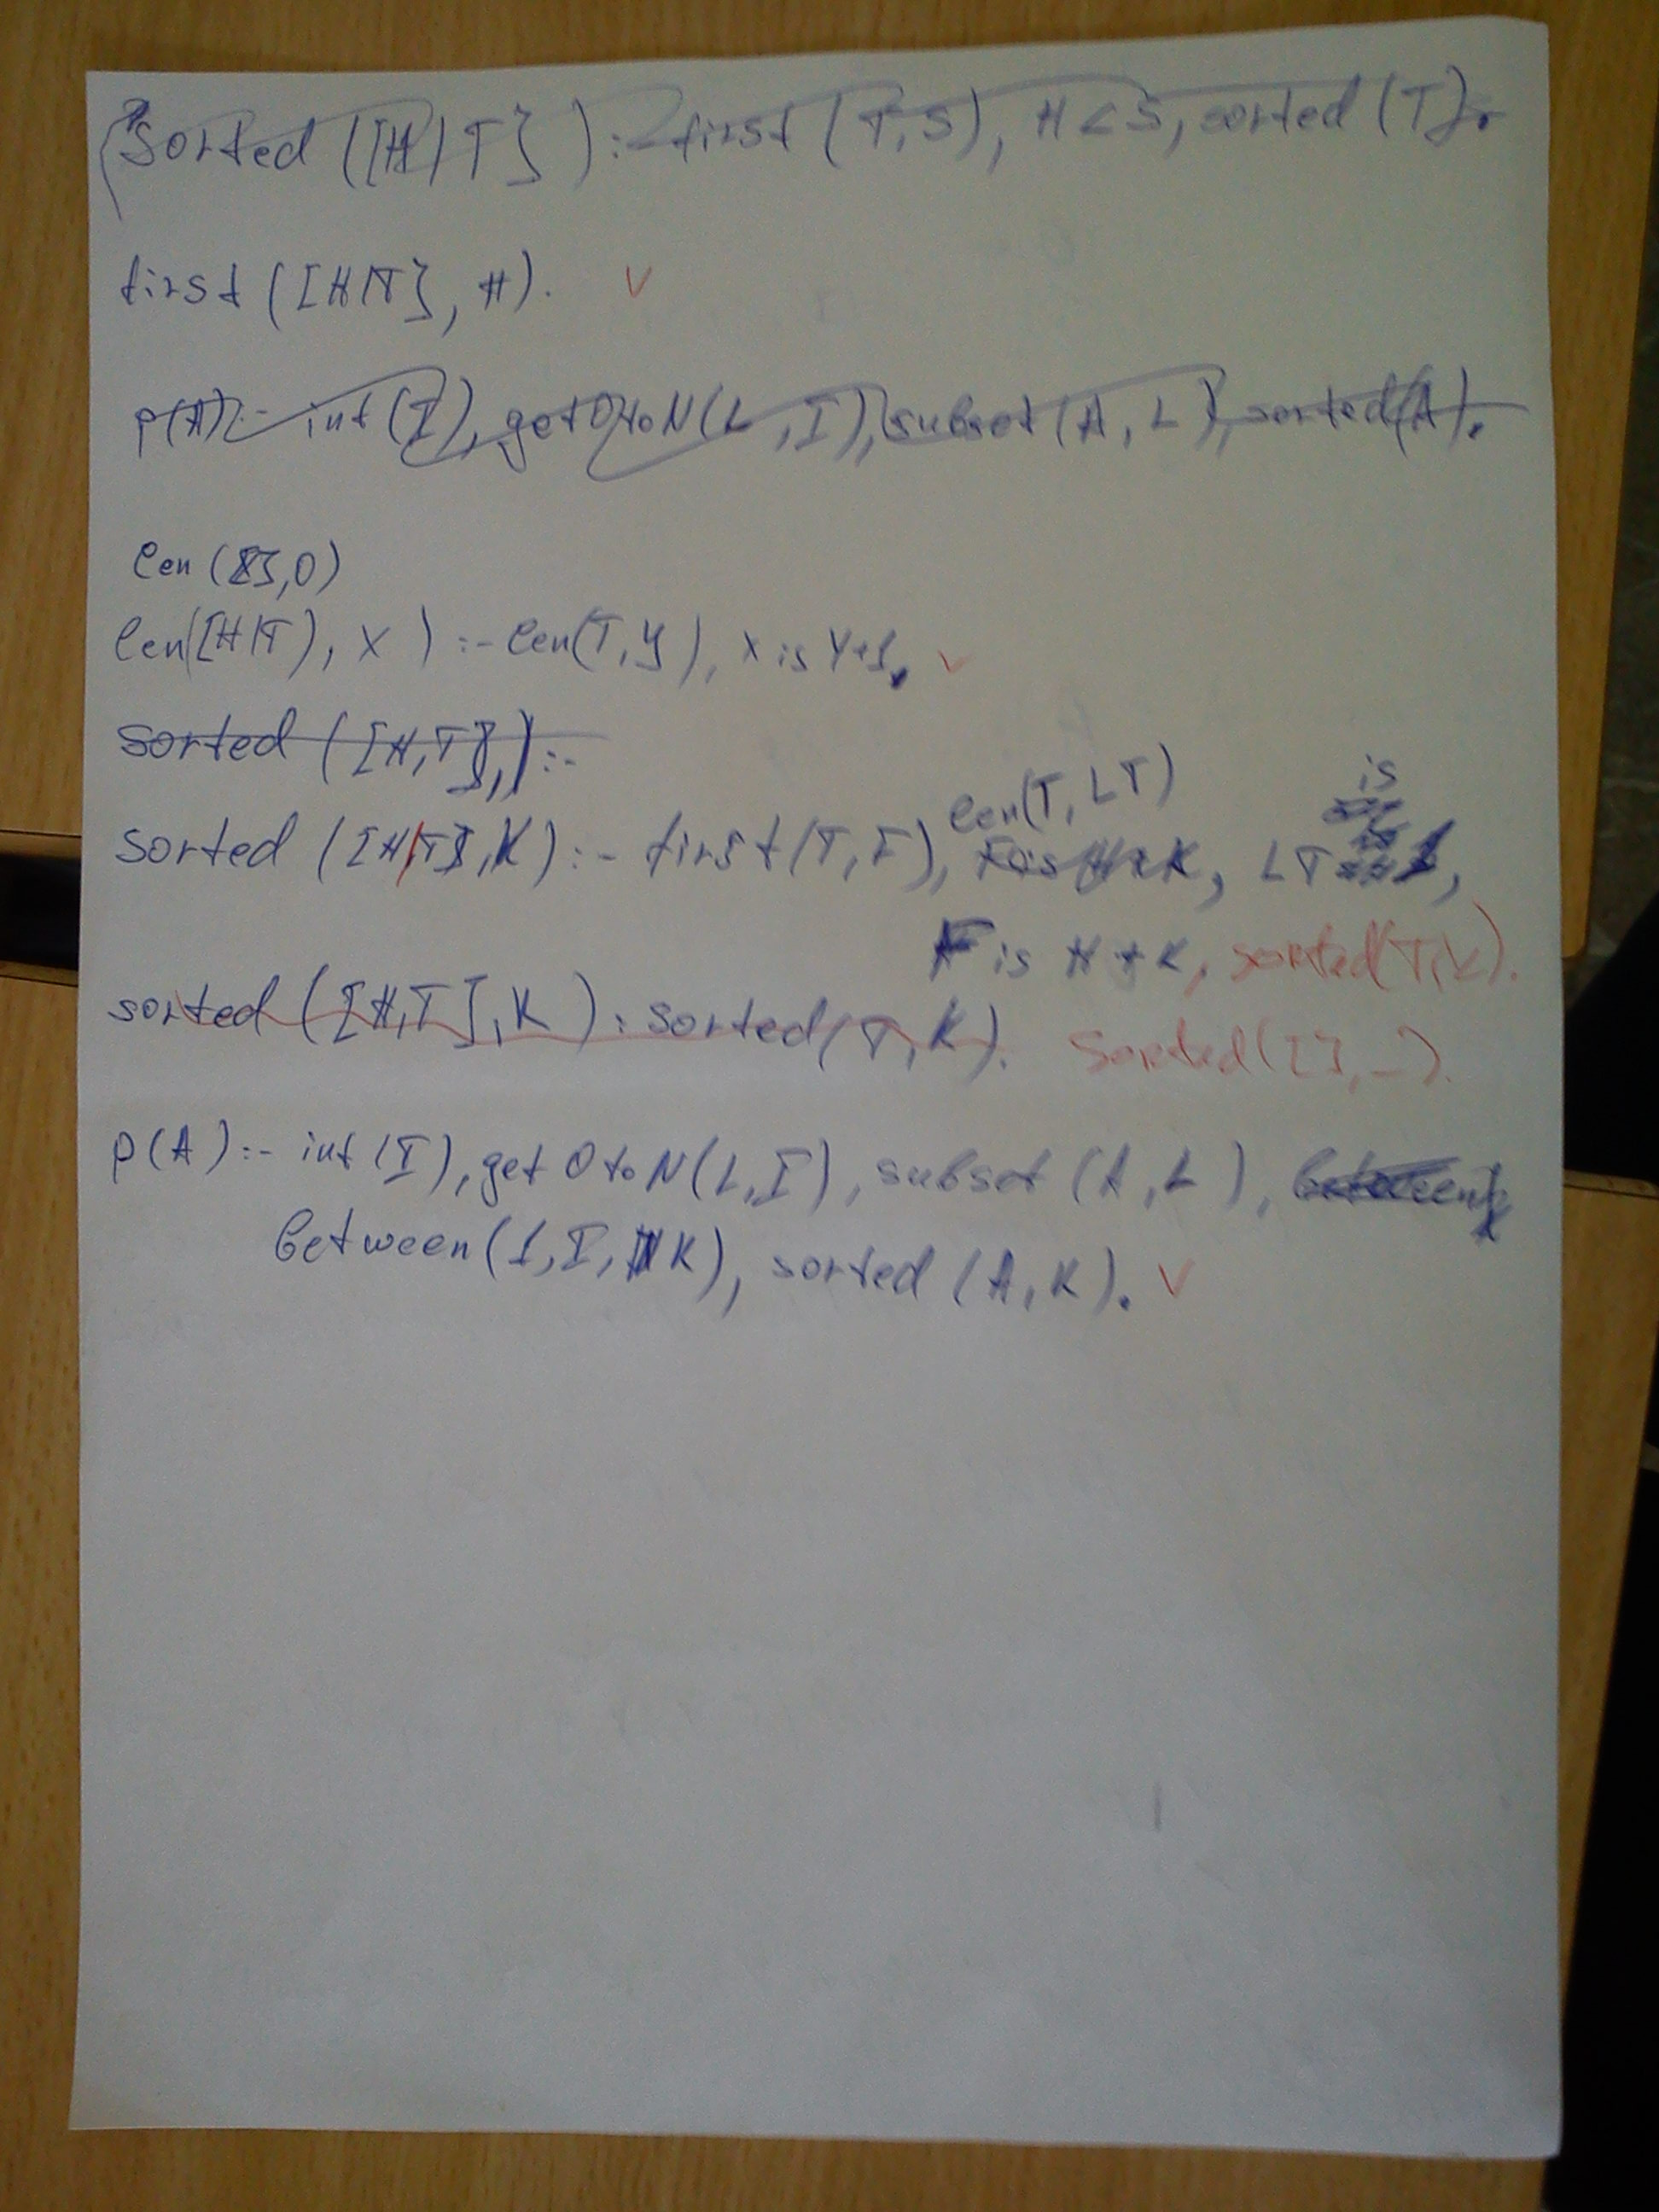 sorted ([H|T]) :- first (T,S), H<S, sorted (T).
first ([H|T], H). V
p(A):- int(I), get0toN(L,I), subset(A,L), sorted(A).
len ([],0)
len([H|T), X ) :- len(T,Y), X is Y+1. V
sorted ([H,T],):-
len(T, LT) is
sorted ([H|T],K) :- first(T,F), F is H+K, LT
F is H+K, sorted(T,K).
sorted ([H,T],K) : sorted(T,K). sorted([],_).
p(A):- int(I), get0toN(L,I), subset (A,L), between(
between(1,I,K), sorted (A,K). V